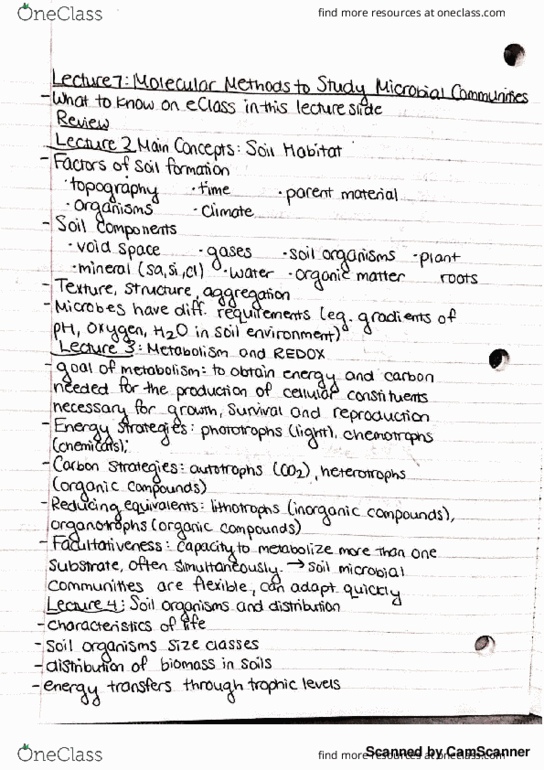 OneClass
find more resources at oneclass.com
Lecture 7: Molecular Methods to Study Microbial Communities
- What to know on eClass in this lecture slide
Review
Lecture 2 Main Concepts: Soil Habitat
- Factors of soil formation
· topography · time · parent material
· organisms · climate
- Soil components
· void space · gases · soil organisms · plant
· mineral (sa, si, cl) · water · organic matter roots
- Texture, structure, aggregation
- Microbes have diff. requirements (eg. gradients of
pH, oxygen, H2O in soil environment)
Lecture 3: Metabolism and REDOX
- goal of metabolism: to obtain energy and carbon
needed for the production of cellular constituents
necessary for growth, survival and reproduction
- Energy strategies: phototrophs (light), chemotrophs
(chemicals);
- Carbon strategies: autotrophs (CO2), heterotrophs
(organic compounds)
- Reducing equivalents: lithotrophs (inorganic compounds),
organotrophs (organic compounds)
- Facultativeness: capacity to metabolize more than one
substrate, often simultaneously. → soil microbial
communities are flexible, can adapt quickly
Lecture 4: Soil organisms and distribution
- characteristics of life
- soil organisms size classes
- distribution of biomass in soils
- energy transfers through trophic levels
OneClass
find more resources at oneclass.com
Scanned by CamScanner